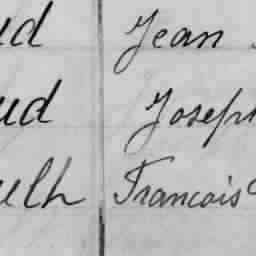 ud Jean
ud Joseph
elh Francois